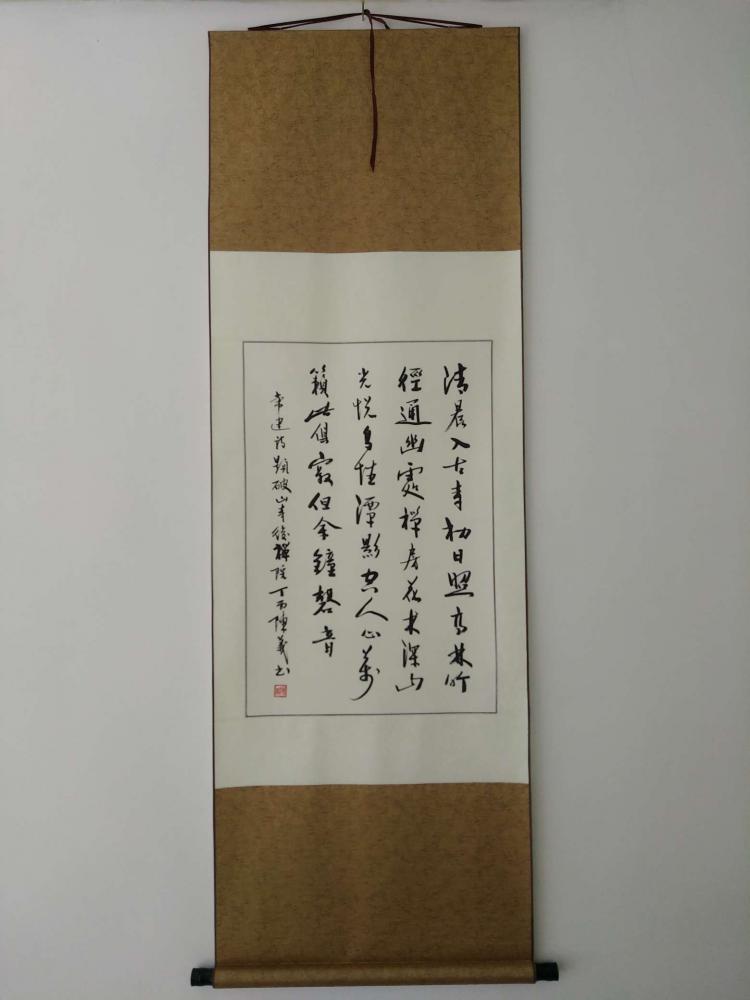 清晨入古寺初日照高林竹
徑通幽處禪房花木深山
光悦鳥性潭影空人心萬
籟此俱寂但余鐘磬音
常建诗題破山寺後禪院丁酉陳義书